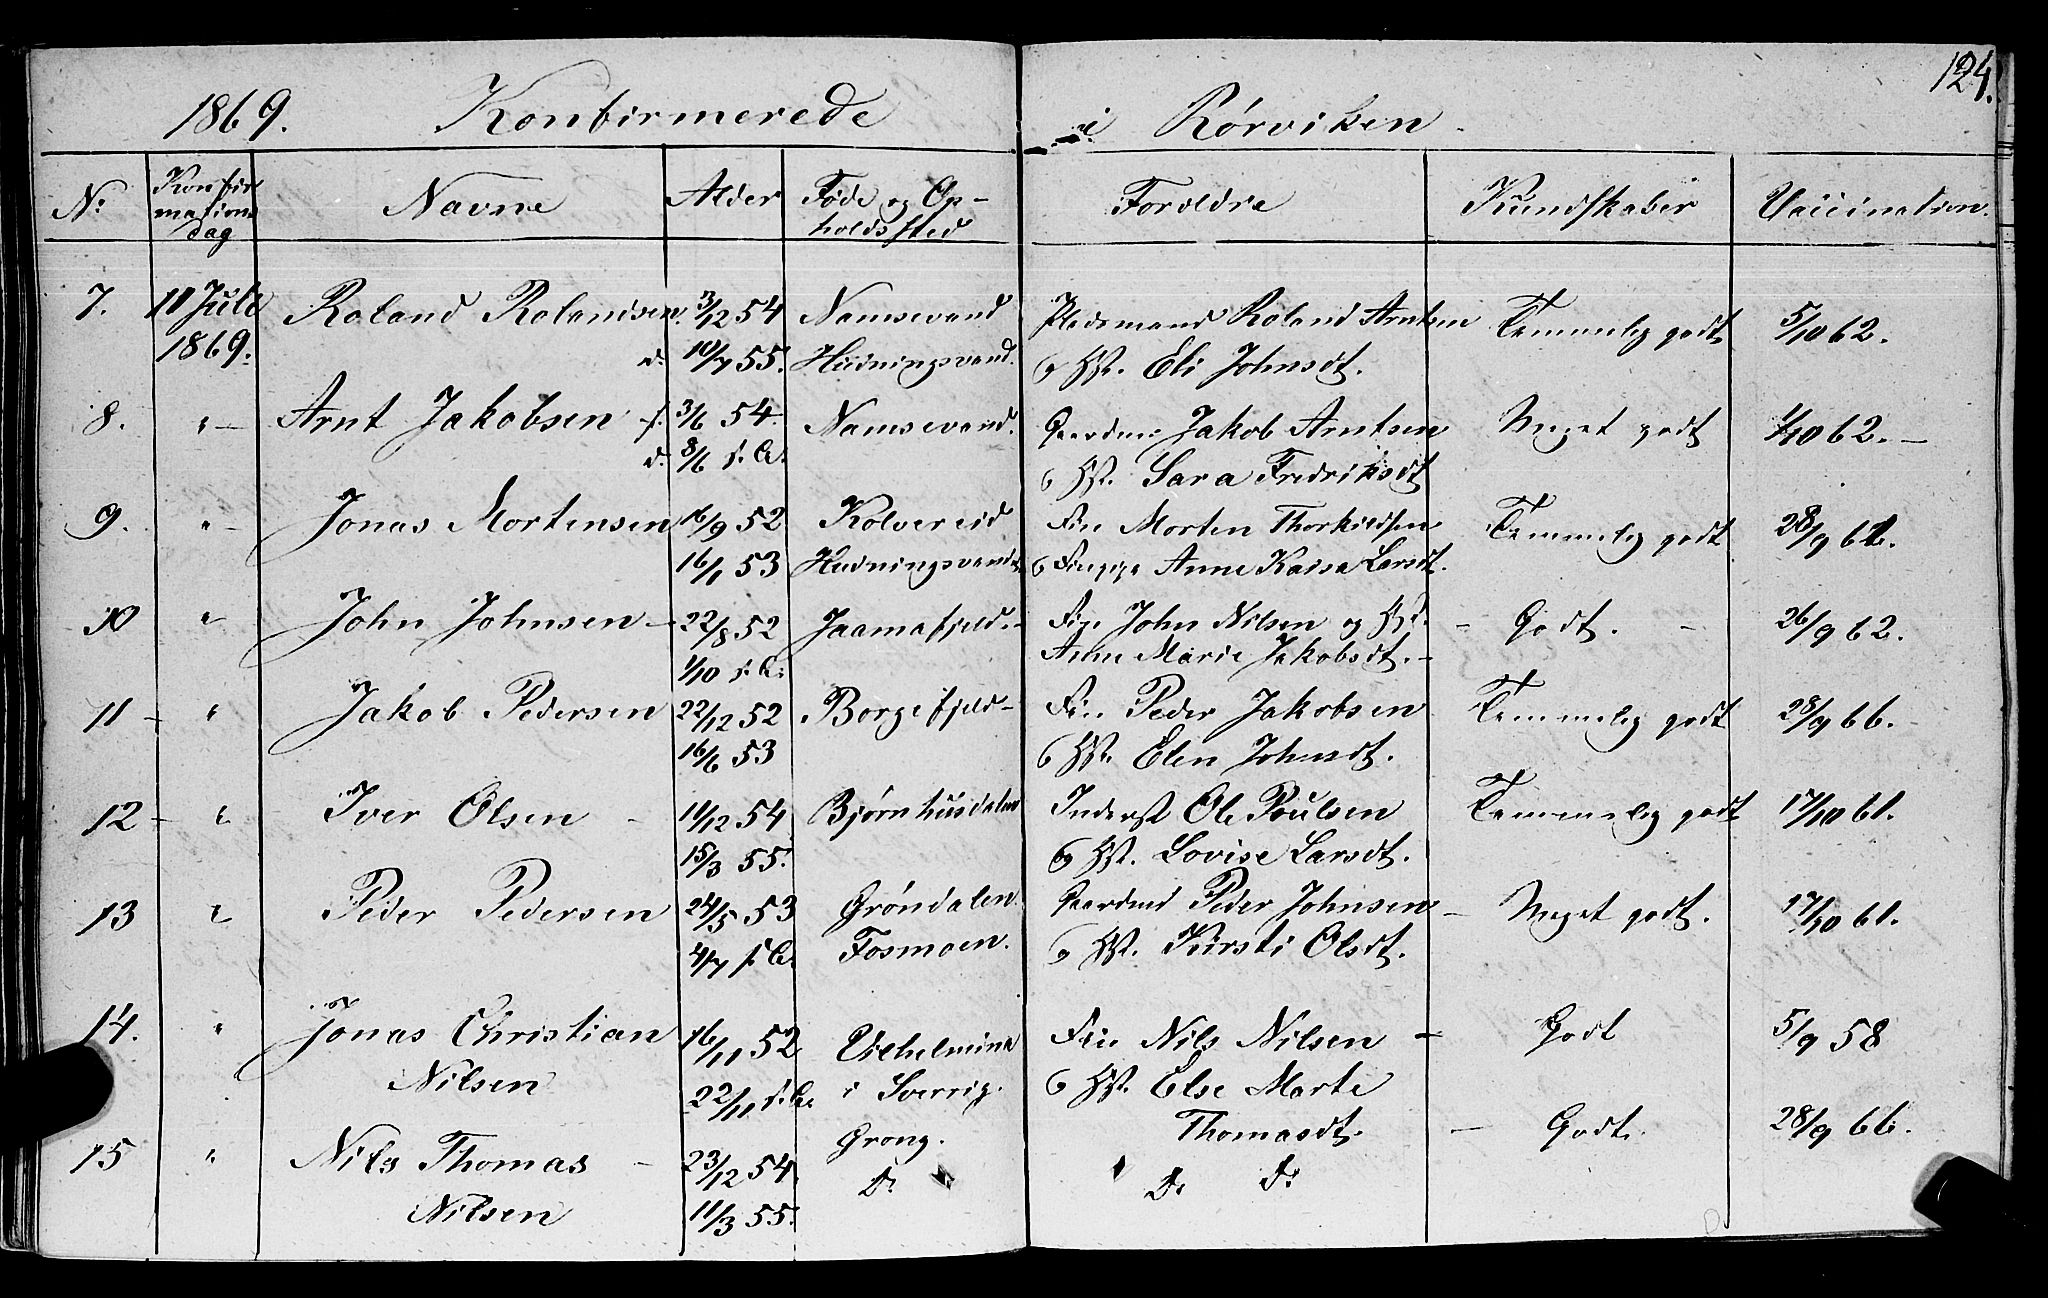 124.
1869. Konfirmerede i Rørviken.
N: Konfir Navne Alder Føde og Op- Forældre Kundskaber Vaccination.
mations holdssted
dag
7. 11 Juli Roland Rolandsen. 3/12 54 Namsevand Pladsmand Roland Arntsen Temmelig godt 5/10 62.
1869. d. 10/7 55. Hudningsvand. og Hst. Eli Johnsdt.
8. " Arnt Jakobsen f. 3/6 54. Namsevand. Gaardm: Jakob Arntsen Meget godt 1/10 62. –
d. 8/6 s. A. og Hst. Sara Fredriksdt
9. " Jonas Mortensen 16/9 52 Kolvereid Fin Morten Thorkildsen Temmelig godt 28/9 66.
16/1 53 Hudningsvand og Finpge Anne Kaisa Larsdt.
10 " John Johnsen – 22/8 52 Jaamafjeld. – Fin John Nilsen og Hst. – Godt. – 26/9 62.
1/10 s. A. Anne Marie Jakobsdt. –
11 – " Jakob Pedersen 22/12 52 Børgefjeld – Fin Peder Jakobsen Temmelig godt 28/9 66.
16/6 53 og Hst. Elen Johnsdt.
12 – " Iver Olsen – 11/12 54 Bjørnhusdalen Inderst Ole Poulsen Temmelig godt 17/10 61.
15/3 55. og Hst. Lovise Larsdt.
13 " Peder Pedersen 24/5 53 Grøndalen Gaardmd Peder Johnsen – Meget godt. 17/10 61.
4/7 s. A. Fosmoen. og Hst. Kirsti Olsdt.
14. " Jonas Christian 16/11 52 Vilhelmina Fin Nils Nilsen – Godt 5/9 58
Nilsen 22/11 s. A. i Sverrig. og Hst. Else Marte
Thomasdt.
15 " Nils Thomas – 23/12 54. Grong. D: D: – Godt. 28/9 66.
Nilsen 11/3 55. D: